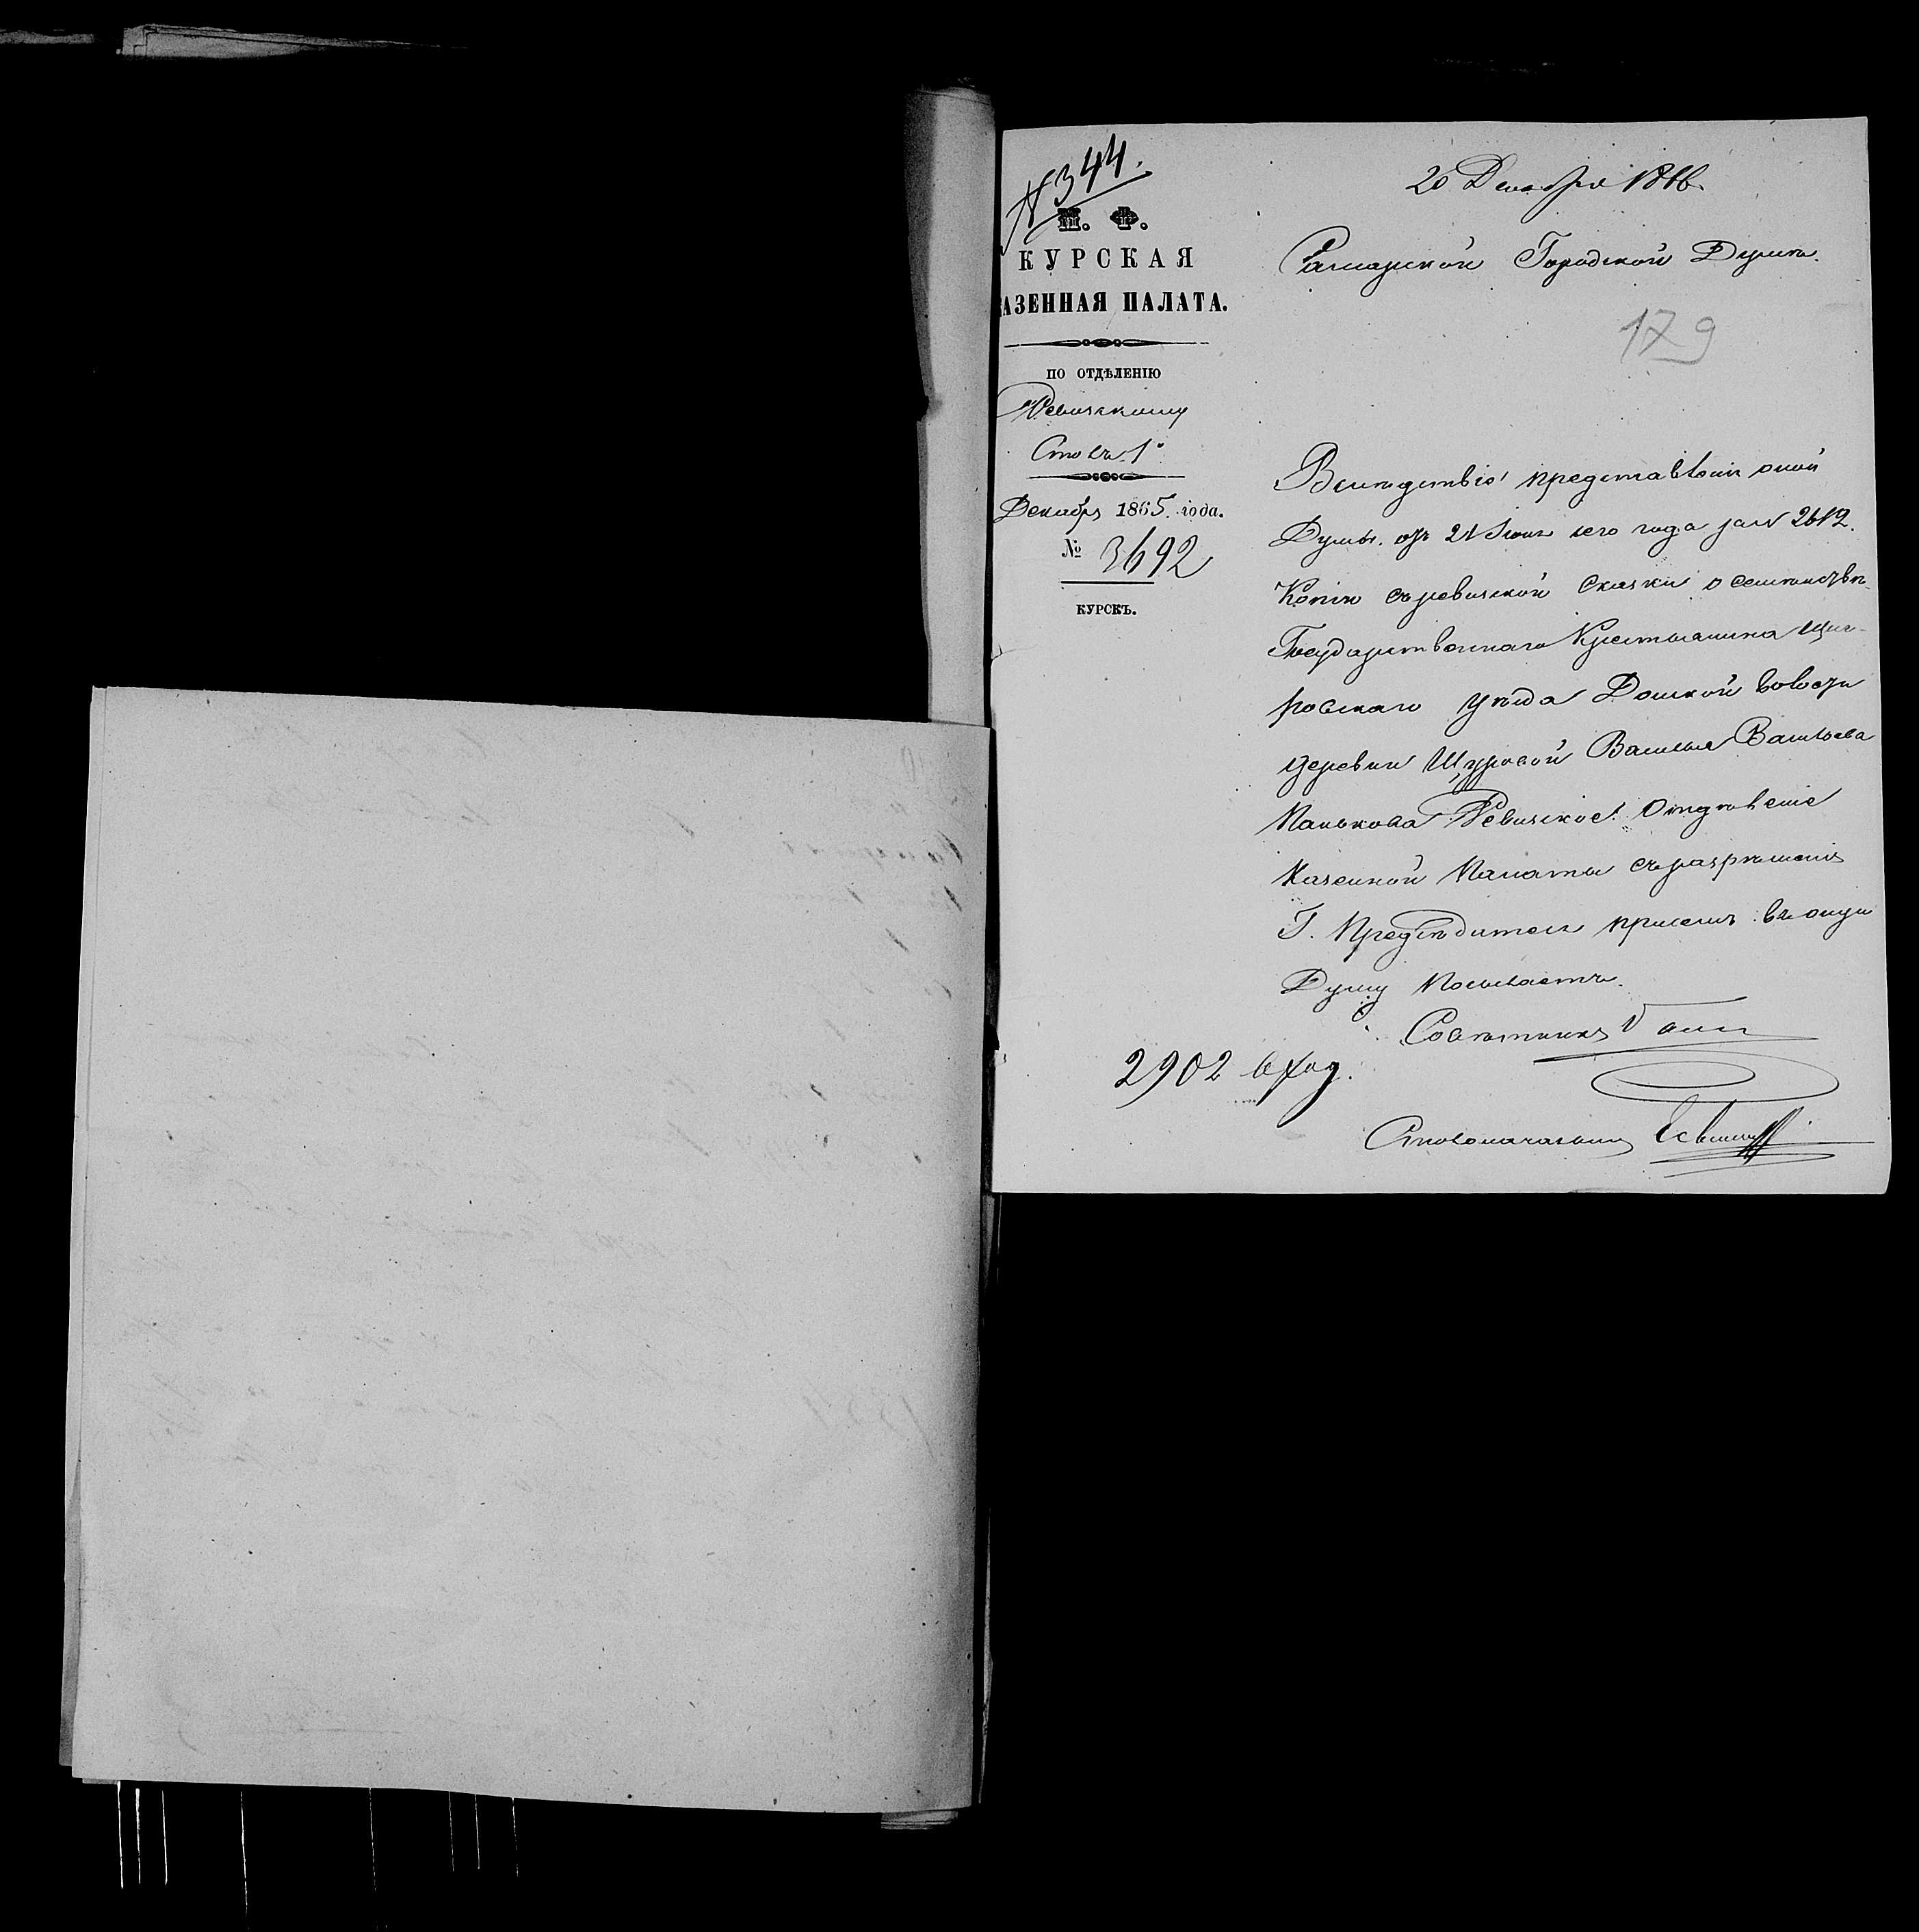 №344.
М. Ф.
КУРСКАЯ
АЗЕННАЯ ПАЛАТА.
ПО ОТДѢЛЕНІЮ
Ревизскому
Столъ 1°
Декабря 1865 года.
№ 3692
КУРСКЪ.
20 Декабря
Самарской Городской Думѣ.
179
Вслѣдствіе представленія оной
Думы отъ 21 Іюня сего года за №
Копію съ ревизской сказки о семействѣ
Государственнаго Крестьянина Щиг-
ровскаго уѣзда Донской волости
деревни Щуровой Василья Васильева
Панькова Ревизское Отдѣленіе
Казенной Палаты съ разрѣшенія
Г. Предсѣдателя при семъ въ оную
Думу посылаетъ.
Совѣтникъ
2902 вход.
Столоначальникъ